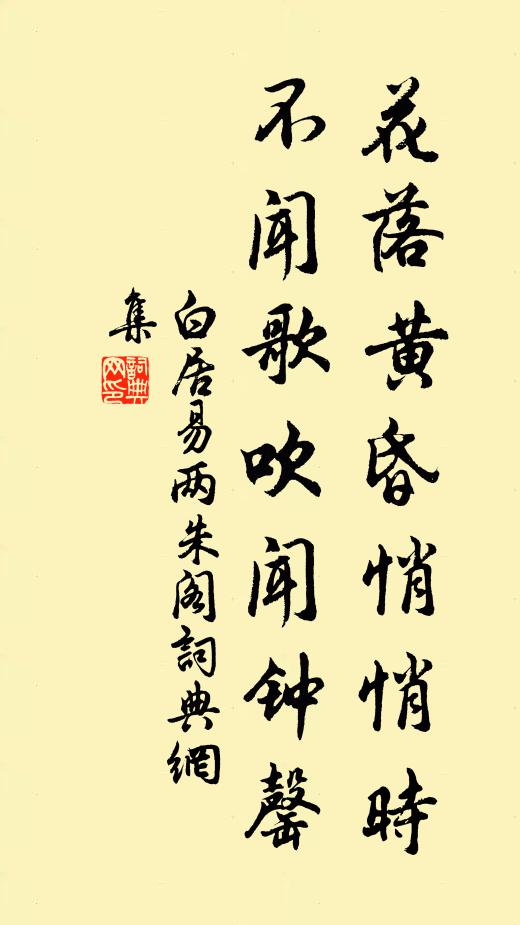 花落黄昏悄悄時
不闻歌吹闻钟罄
白居易两朱阁詞典網
集
詞典网印